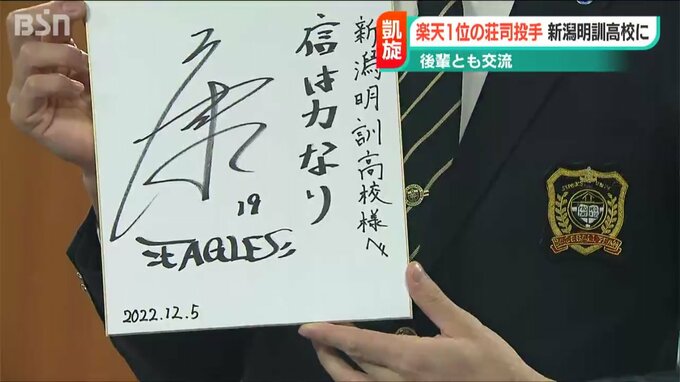 BSN
凱旋
楽天1位の荘司投手 新潟明訓高校に
後輩とも交流
新潟明訓高校様へ
信は力なり
康
19
EAGLES
2022.12.5